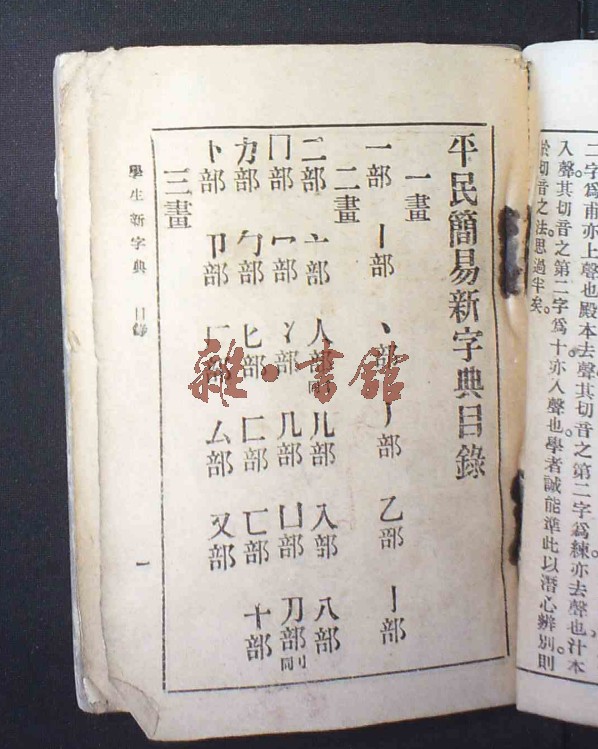 二字爲甫亦上聲也。殿本去聲。其切音之第二字爲練。亦去聲也。汁本
入聲。其切音之第二字爲十。亦入聲也。學者誠能準此以潛心辨別。則
於切音之法。思過半矣。
平民簡易新字典目錄
一畫
一部 丨部 丶部 丿部 乙部 亅部
二畫
二部 亠部 人部同亻 儿部 入部 八部
冂部 冖部 冫部 几部 凵部 刀部同刂
力部 勹部 匕部 匚部 匸部 十部
卜部 卩部 厂部 厶部 又部
三畫
學生新字典 目錄 一
雜·書館